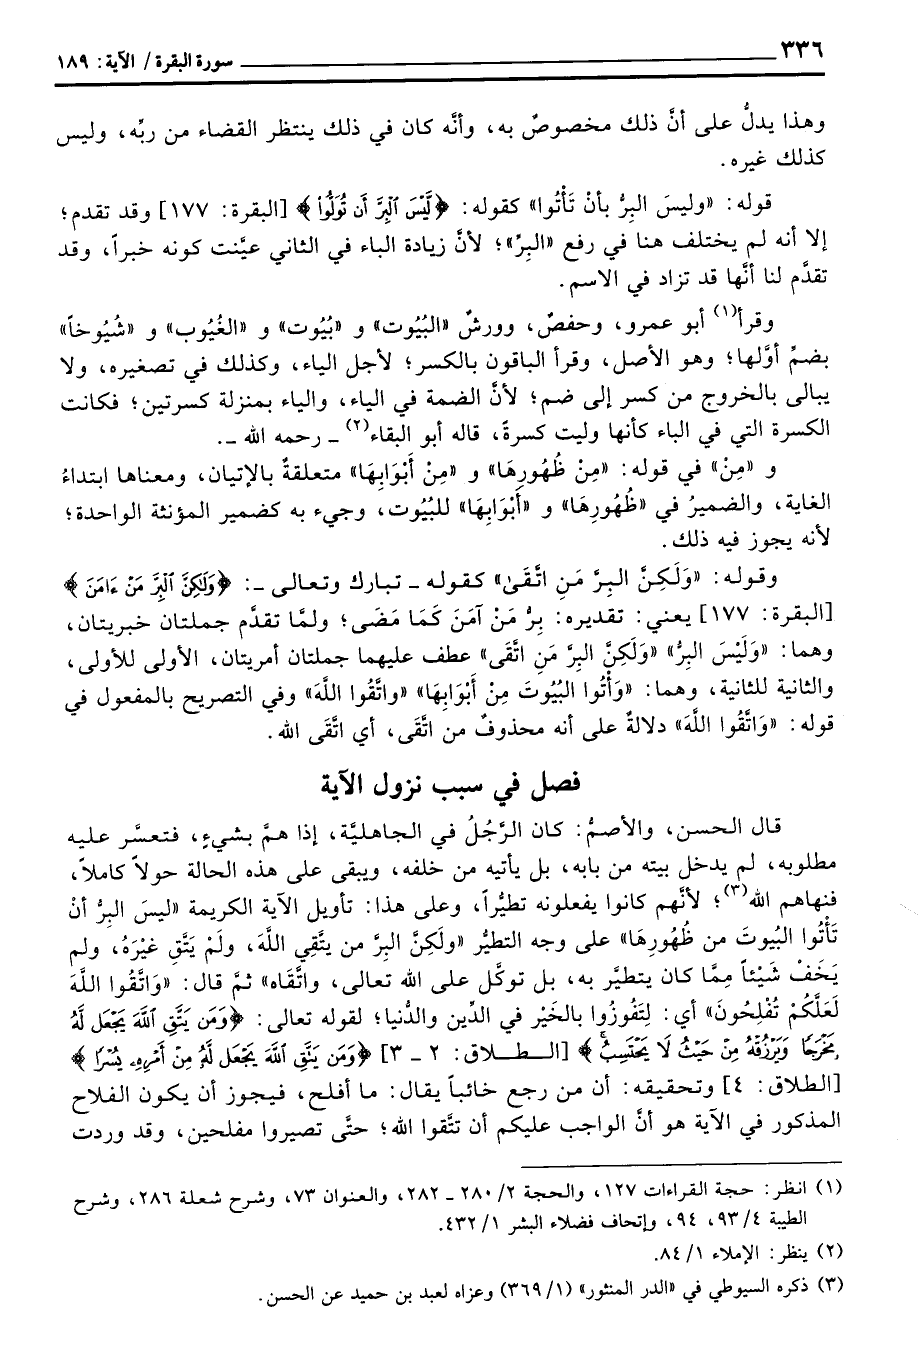 ٣٣٦ سورة البقرة / الآية: ١٨٩
وهذا يدلُّ على أنَّ ذلك مخصوصٌ به، وأنَّه كان في ذلك ينتظر القضاء من ربِّه، وليس
كذلك غيره.
قوله: «وليسَ البِرُّ بأنْ تَأْتُوا» كقوله: ﴿لَّيْسَ ٱلْبِرَّ أَن تُوَلُّوا۟﴾ [البقرة: ١٧٧] وقد تقدم؛
إلا أنه لم يختلف هنا في رفع «البِرُّ»؛ لأنَّ زيادة الباء في الثاني عيَّنت كونه خبراً، وقد
تقدَّم لنا أنَّها قد تزاد في الاسم.
وقرأ(١) أبو عمرو، وحفصٌ، وورشٌ «البُيُوت» و «بُيُوت» و «الغُيُوب» و «شُيُوخاً»
بضمِّ أوَّلها؛ وهو الأصل، وقرأ الباقون بالكسر؛ لأجل الياء، وكذلك في تصغيره، ولا
يبالى بالخروج من كسر إلى ضم؛ لأنَّ الضمة في الياء، والياء بمنزلة كسرتين؛ فكانت
الكسرة التي في الباء كأنها وليت كسرةً، قاله أبو البقاء(٢) ـ رحمه الله ـ.
و «مِنْ» في قوله: «مِنْ ظُهُورِهَا» و «مِنْ أَبْوَابِهَا» متعلقةٌ بالإتيان، ومعناها ابتداءُ
الغاية، والضميرُ في «ظُهُورِهَا» و «أَبْوَابِهَا» للبُيُوت، وجيء به كضمير المؤنثة الواحدة؛
لأنه يجوز فيه ذلك.
وقوله: «وَلَكِنَّ البِرَّ مَنِ اتَّقَىٰ» كقوله ـ تبارك وتعالى ـ: ﴿وَلَٰكِنَّ ٱلْبِرَّ مَنْ ءَامَنَ﴾
[البقرة: ١٧٧] يعني: تقديره: بِرُّ مَنْ آمَنَ كَمَا مَضَى؛ ولمَّا تقدَّم جملتان خبريتان،
وهما: «وَلَيْسَ البِرُّ» «وَلَكِنَّ البِرَّ مَنِ اتَّقَى» عطف عليهما جملتان أمريتان، الأولى للأولى،
والثانية للثانية، وهما: «وَأْتُوا البُيُوتَ مِنْ أَبْوَابِهَا» «واتَّقُوا اللَّهَ» وفي التصريح بالمفعول في
قوله: «وَاتَّقُوا اللَّهَ» دلالةٌ على أنه محذوفٌ من اتَّقَى، أي اتَّقَى الله.
فصل في سبب نزول الآية
قال الحسن، والأصمُّ: كان الرَّجُلُ في الجاهليَّة، إذا همَّ بشيءٍ، فتعسَّر عليه
مطلوبه، لم يدخل بيته من بابه، بل يأتيه من خلفه، ويبقى على هذه الحالة حولاً كاملاً،
فنهاهم الله(٣)؛ لأنَّهم كانوا يفعلونه تطيُّراً، وعلى هذا: تأويل الآية الكريمة «ليسَ البِرُّ أنْ
تَأْتُوا البُيوتَ من ظُهُورِهَا» على وجه التطيُّر «ولكنَّ البِرَّ من يتَّقِي اللَّهَ، ولَمْ يَتَّقِ غَيْرَهُ، ولم
يَخَفْ شَيْئاً مِمَّا كان يتطيَّر به، بل توكَّل على الله تعالى، واتَّقَاه» ثمَّ قال: «وَاتَّقُوا اللَّهَ
لَعَلَّكُمْ تُفْلِحُونَ» أي: لِتَفُوزُوا بالخَيْر في الدِّين والدُّنيا؛ لقوله تعالى: ﴿وَمَن يَتَّقِ ٱللَّهَ يَجْعَل لَّهُۥ
مَخْرَجًا وَيَرْزُقْهُ مِنْ حَيْثُ لَا يَحْتَسِبُ﴾ [الـطـلاق: ٢ ـ ٣] ﴿وَمَن يَتَّقِ ٱللَّهَ يَجْعَل لَّهُۥ مِنْ أَمْرِهِۦ يُسْرًا﴾
[الطلاق: ٤] وتحقيقه: أن من رجع خائباً يقال: ما أفلح، فيجوز أن يكون الفلاح
المذكور في الآية هو أنَّ الواجب عليكم أن تتَّقوا الله؛ حتَّى تصيروا مفلحين، وقد وردت
(١) انظر: حجة القراءات ١٢٧، والحجة ٢/ ٢٨٠ ـ ٢٨٢، والعنوان ٧٣، وشرح شعلة ٢٨٦، وشرح
الطيبة ٤/ ٩٣، ٩٤، وإتحاف فضلاء البشر ١/ ٤٣٢.
(٢) ينظر: الإملاء ١/ ٨٤.
(٣) ذكره السيوطي في «الدر المنثور» (١/ ٣٦٩) وعزاه لعبد بن حميد عن الحسن.